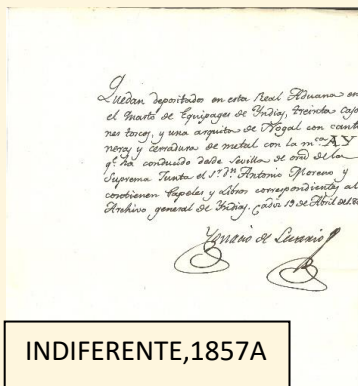 Quedan depositados en esta Real Aduana en
el quarto de Equipages de Yndias, treinta cajo
nes toscos, y una arquita de Nogal con canto
neras y cerradura de metal con la m.ca AY
q.e ha conducido desde Sevilla de orn de la
Suprema Junta el S.r D.n Antonio Moreno y
contienen Papeles y Libros correspondientes al
Archivo general de Yndias. Cadiz 19 de Abril de
Ygnacio de
INDIFERENTE,1857A